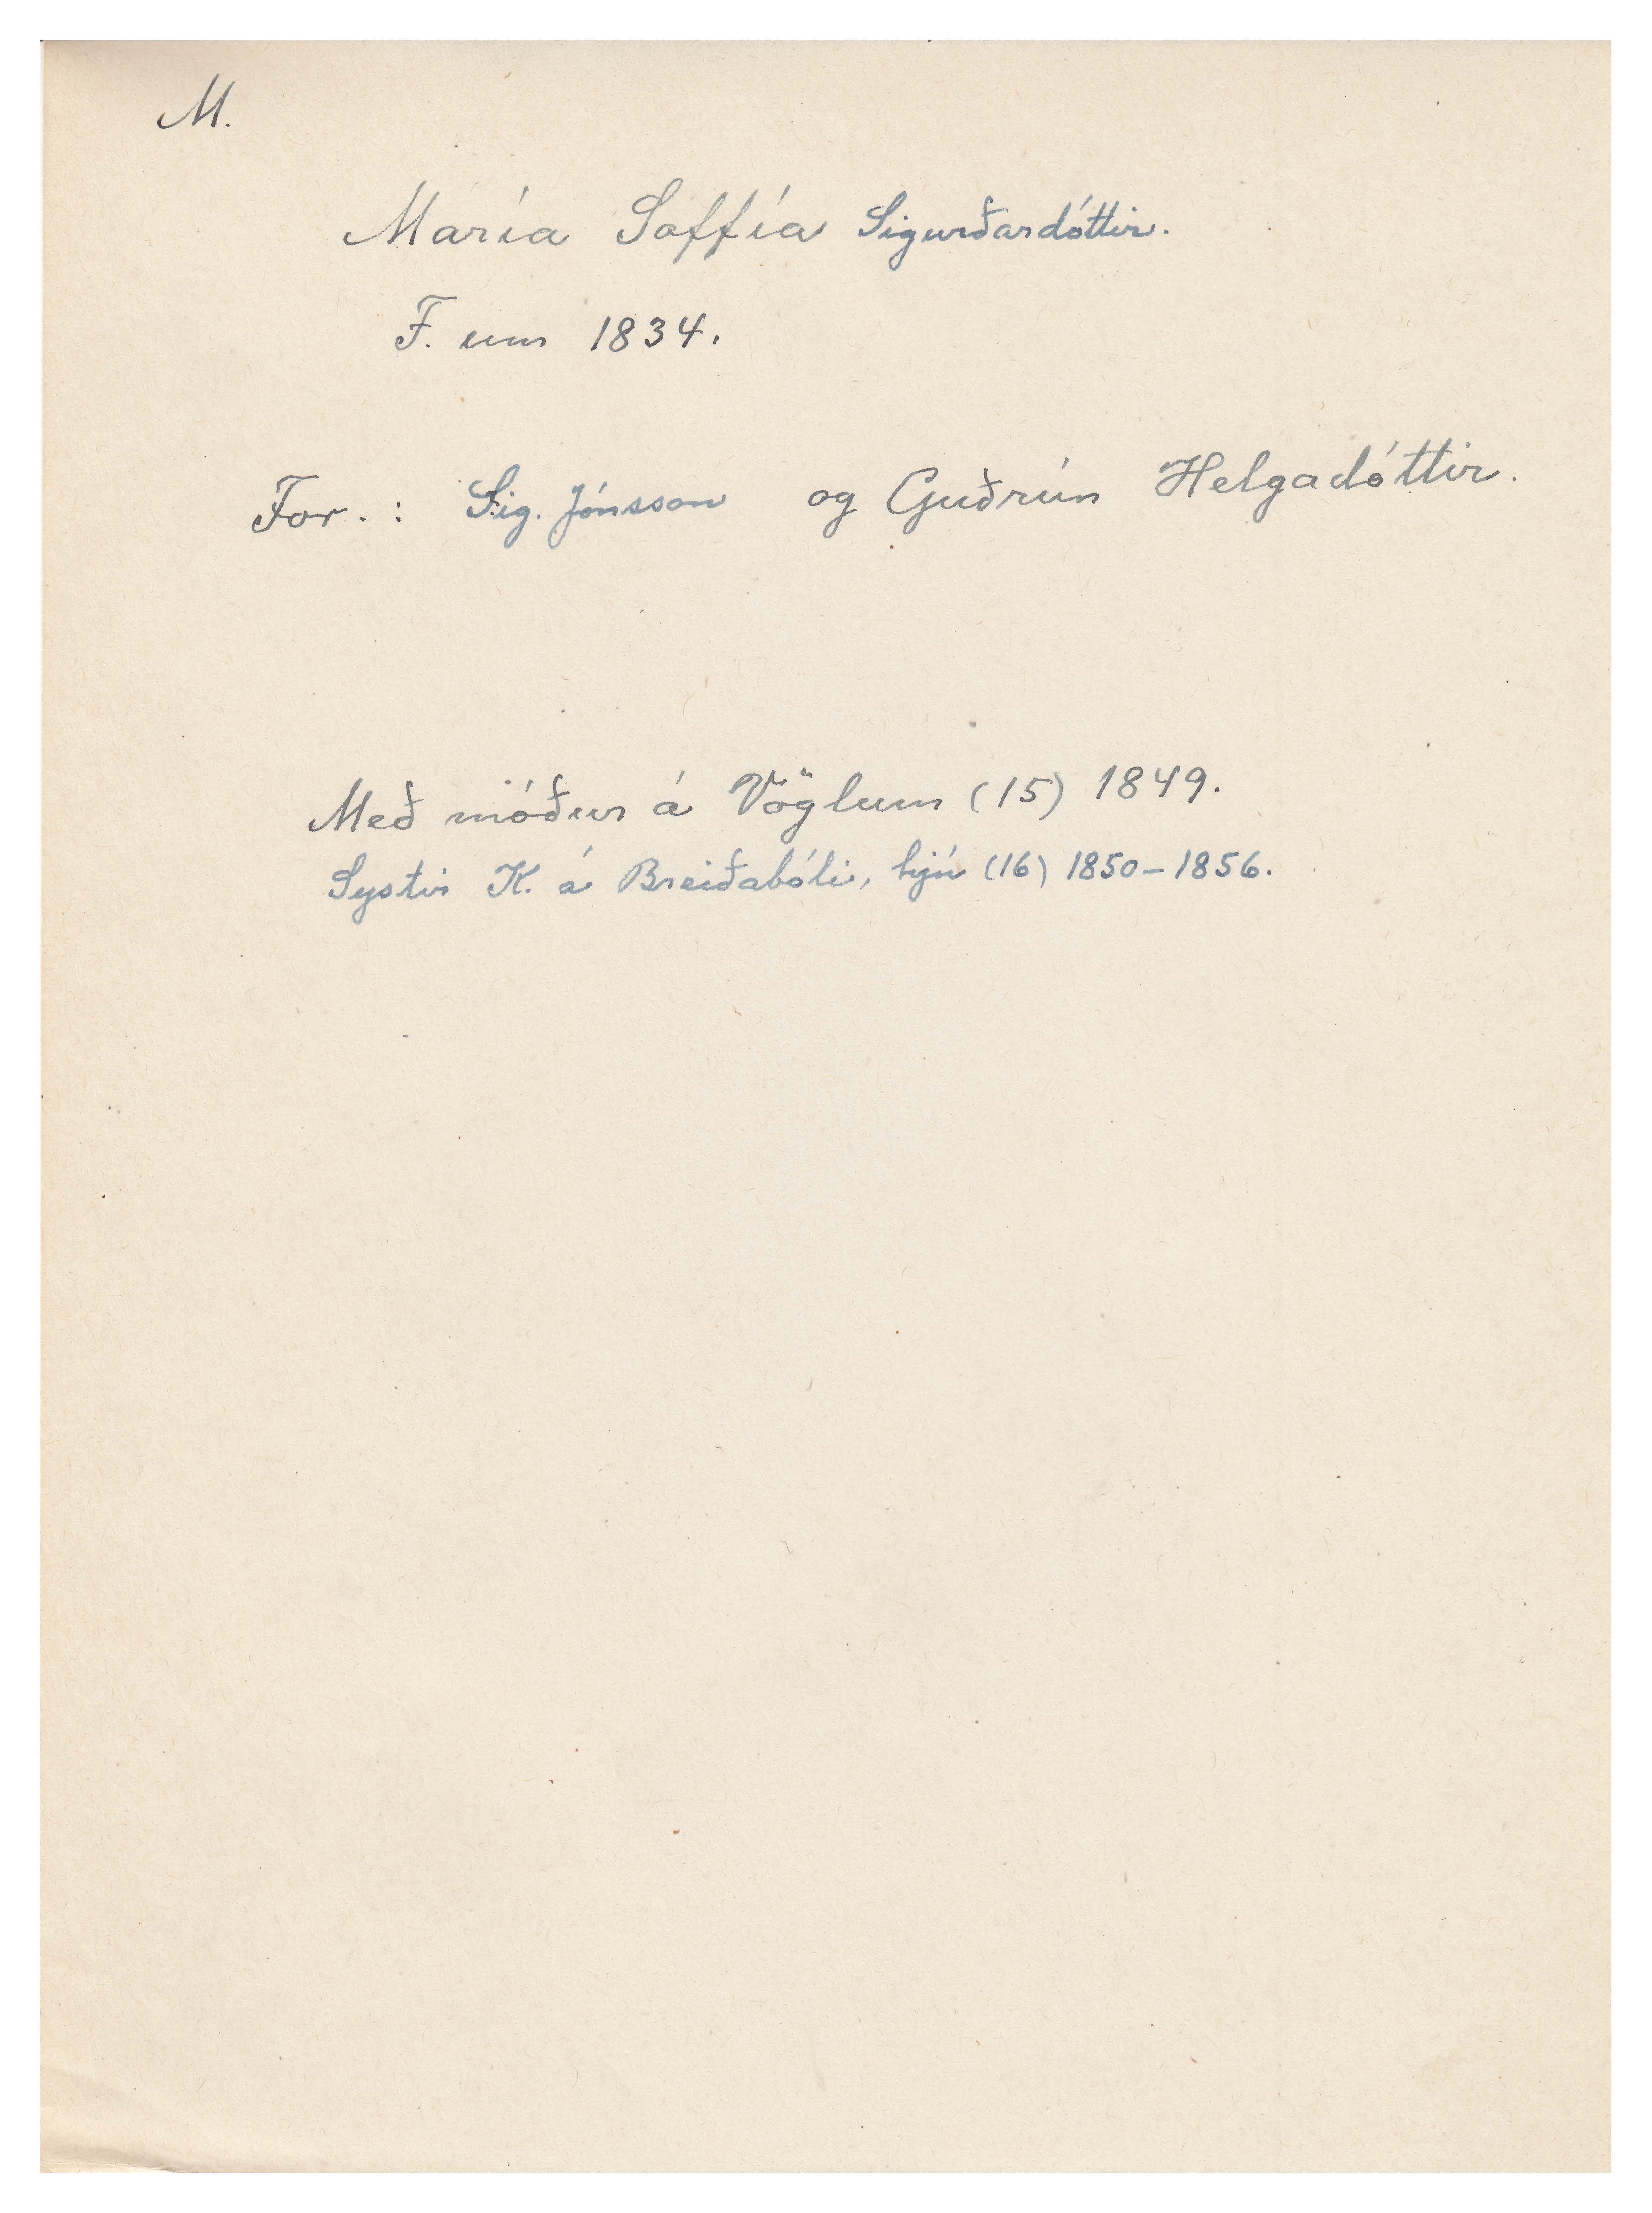 M.
María Soffía Sigurðardóttir.
F. um 1834.
For. : Sig. Jónsson og Guðrún Helgadóttir.
Með móður á Vöglum (15) 1849.
Systir K. á Breiðabóli, hjú (16) 1850-1856.